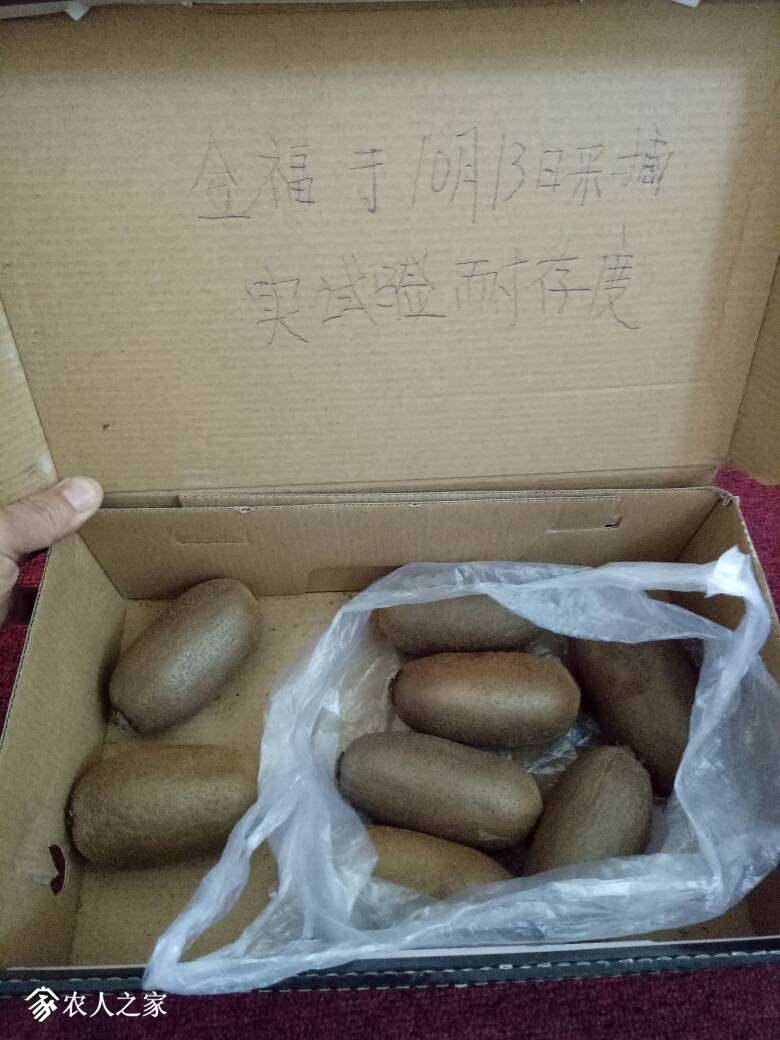 金福于10月13日采摘
实试验耐存度
农人之家